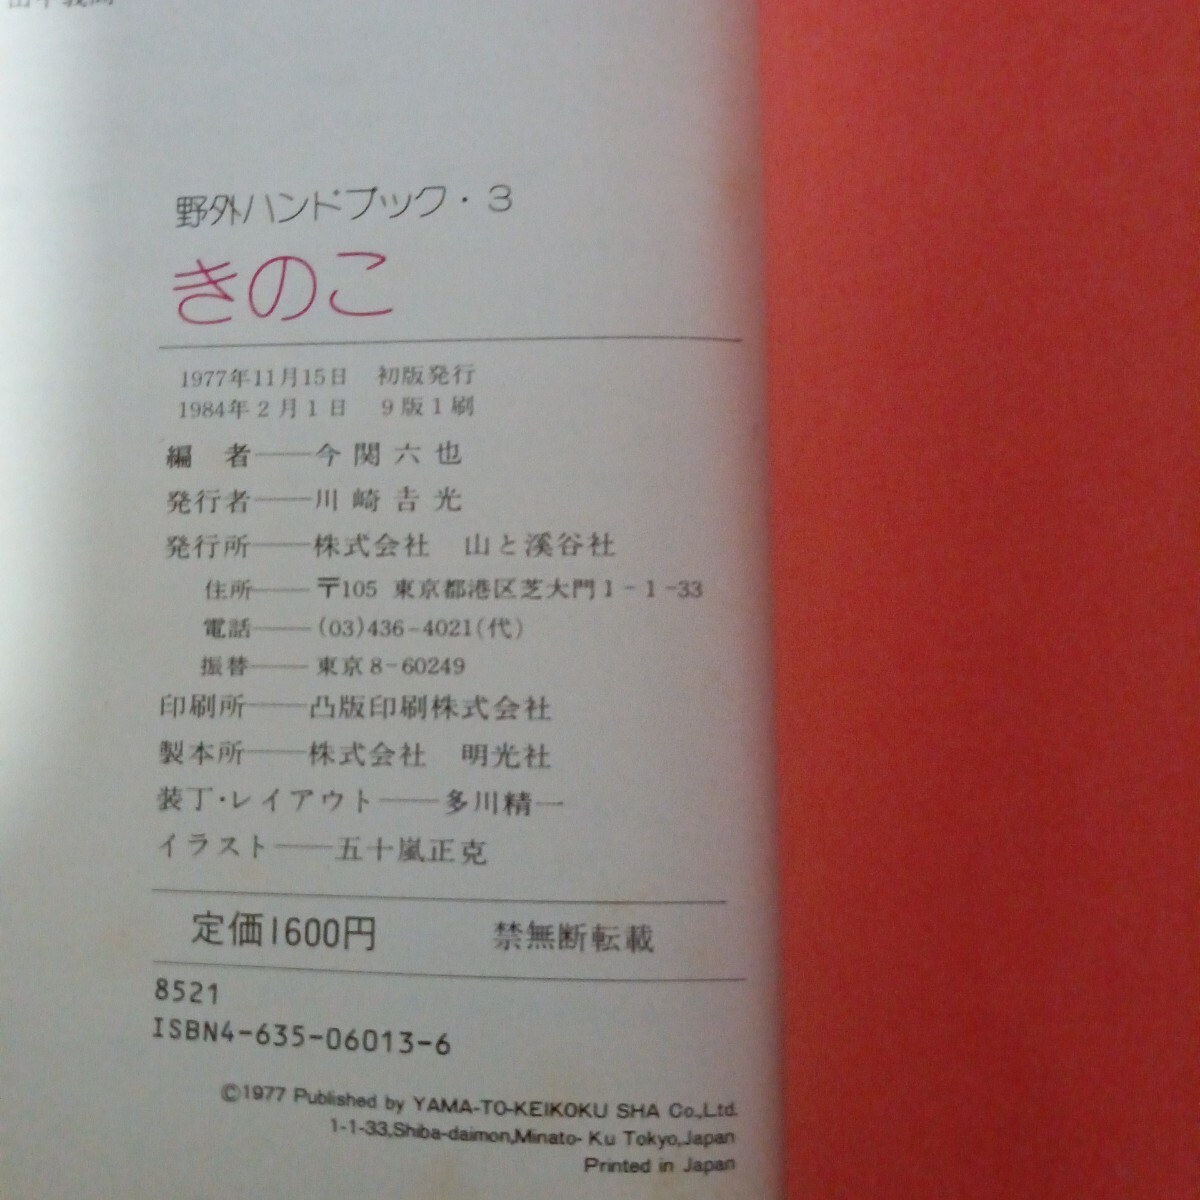 野外ハンドブック・3
きのこ
1977年11月15日 初版発行
1984年2月1日 9版1刷
編 者――今関六也
発行者――川崎吉光
発行所――株式会社 山と溪谷社
住所――〒105 東京都港区芝大門1-1-33
電話――(03)436-4021(代)
振替――東京8-60249
印刷所――凸版印刷株式会社
製本所――株式会社 明光社
装丁・レイアウト――多川精一
イラスト――五十嵐正克
定価1600円 禁無断転載
8521
ISBN4-635-06013-6
©1977 Published by YAMA-TO-KEIKOKU SHA Co.,Ltd.
1-1-33,Shiba-daimon,Minato-Ku Tokyo,Japan
Printed in Japan